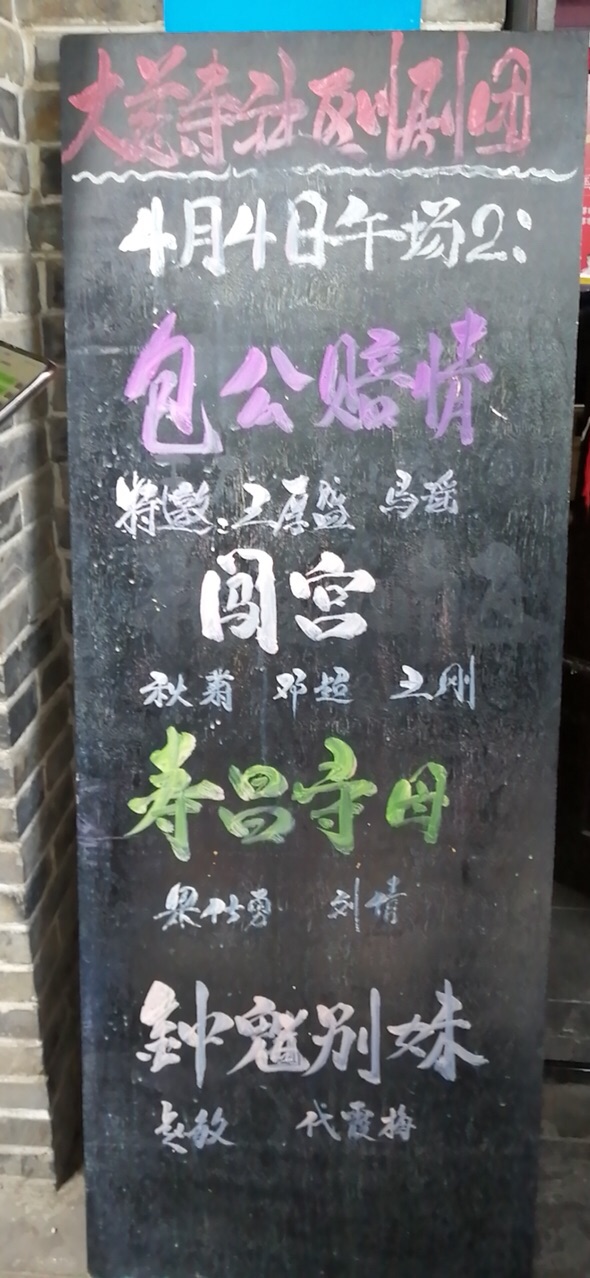 大慈寺社区川剧团
4月4日午场2:
包公赔情
特邀:王厚盛 马瑶
闯宫
秋菊 邓超 王刚
寿昌寻母
梁仕勇 刘倩
鈡魁别妹
赵放 代霞梅